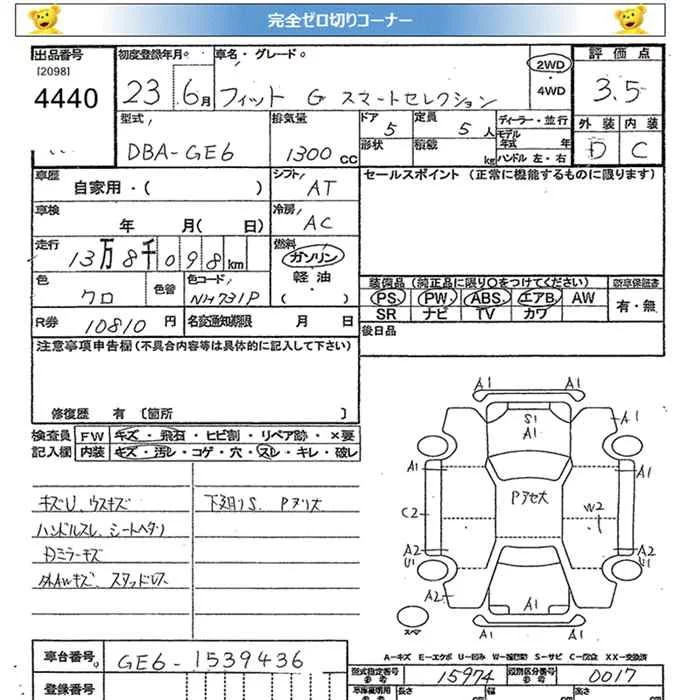 完全ゼロ切りコーナー
出品番号 初度登録年月 車名・グレード 2WD 評価点
[2098]
4440 23 6月 フィット G スマートセレクション ・4WD 3.5
型式 排気量 ドア 5 定員 5人 ディーラー・並行 外装 内装
DBA-GE6 1300 CC 形状 積載 kg モデル年式 年 ハンドル 左・右 D C
車歴 自家用・( ) シフト AT セールスポイント (正常に機能するものに限ります)
車検 年 月( 日) 冷房 AC
走行 13万8千098km 燃料 ガソリン
軽油
・( )
色 クロ 色替 色コード NH731P 装備品(純正品に限り○をつけてください) 新車保証書
PS PW ABS エアB AW 有・無
SR ナビ TV カワ
R券 10810円 名変通知期限 月 日 後日品
注意事項申告欄(不具合内容等は具体的に記入して下さい)
修復歴 有 [箇所 ]
検査員 FW キズ・飛石・ヒビ割・リペア跡・×要
記入欄 内装 キズ・汚レ・コゲ・穴・スレ・キレ・破レ
キズU、ウスキズ 下廻りS. Pアリオ
ハンドルスレ、シートヘタリ
ドミラーキズ
外AWキズ、スタッドレス
A1 A1
S1
A1 A1
A1 A1
Pアセ大
C2 W2
A2 A2
U1 U1
A2
A1
スマ
A1 A1
A-キズ E-エクボ U-凹み W-補修跡 S-サビ C-腐食 XX-交換済
車台番号 GE6-1539436 型式指定番号 15974 類別区分番号 0017
参考 参考
登録番号 長さ 幅 高さ